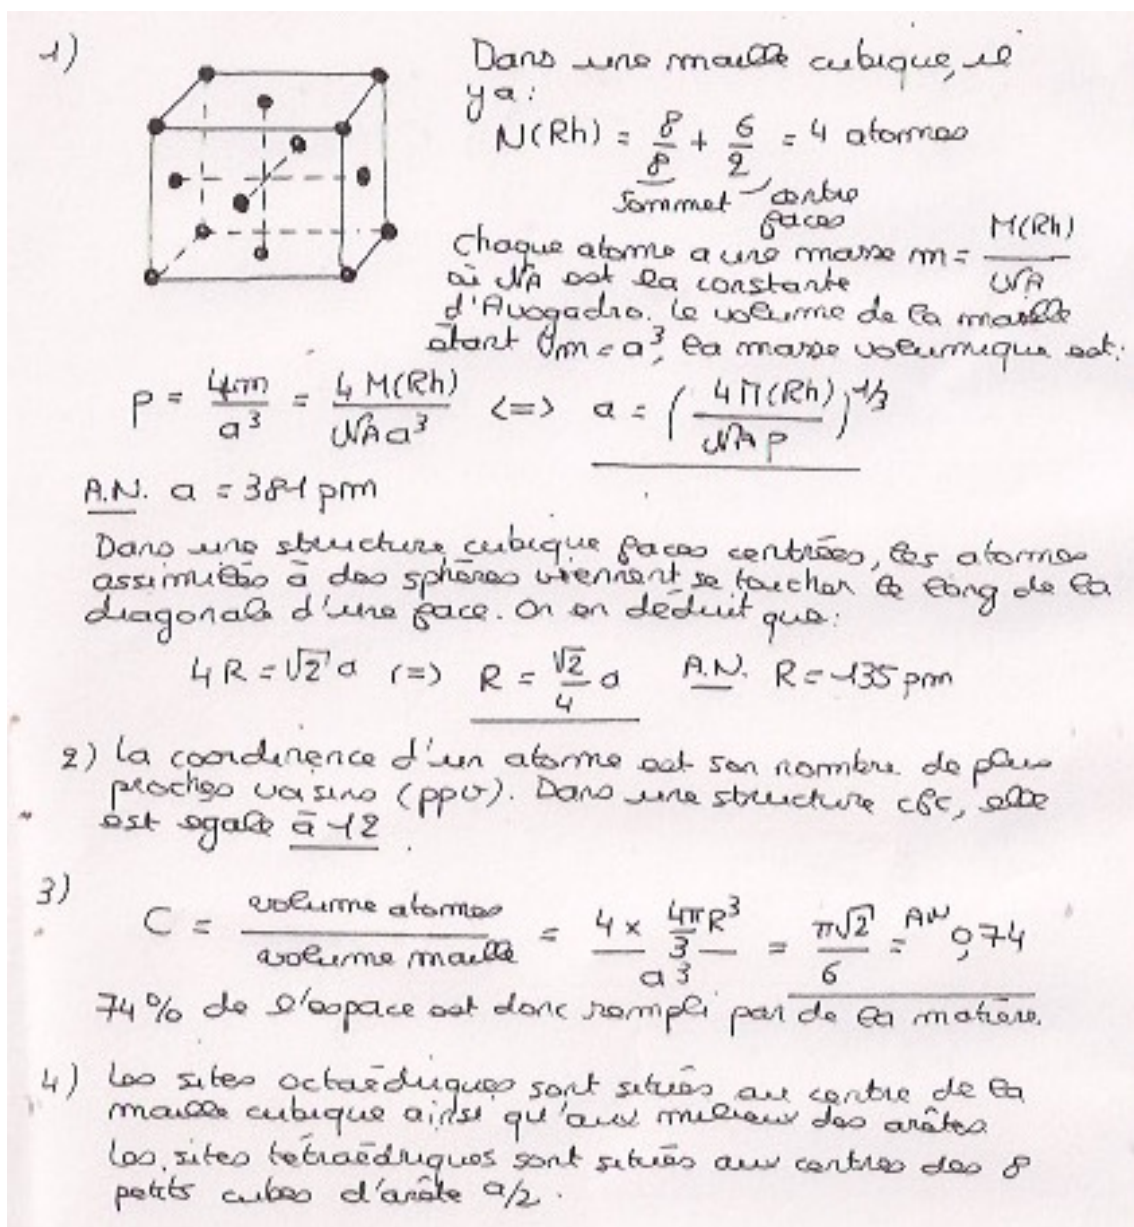 1)
Dans une maille cubique, il
y a:
N(Rh) = 8/8 + 6/2 = 4 atomes
Sommet centre
faces
Chaque atome a une masse m = M(Rh)/NA
où NA est la constante
d'Avogadro. Le volume de la maille
étant Vm = a³, la masse volumique est:
ρ = 4m/a³ = 4 M(Rh)/(NA a³) <=> a = (4 M(Rh)/(NA ρ))^1/3
A.N. a = 381 pm
Dans une structure cubique faces centrées, les atomes
assimilés à des sphères viennent se toucher le long de la
diagonale d'une face. On en déduit que:
4R = √2 a (=) R = √2/4 a A.N. R = 135 pm
2) La coordinence d'un atome est son nombre de plus
proches vosins (ppv). Dans une structure cfc, elle
est egale à 12
3)
C = volume atomes/volume maille = (4 x 4πR³/3)/a³ = π√2/6 =AN 0,74
74% de l'espace est donc rempli par de la matière.
4) Les sites octaédriques sont situés au centre de la
maille cubique ainsi qu'aux milieux des arêtes.
Les sites tétraédriques sont situés aux centres des 8
petits cubes d'arête a/2.